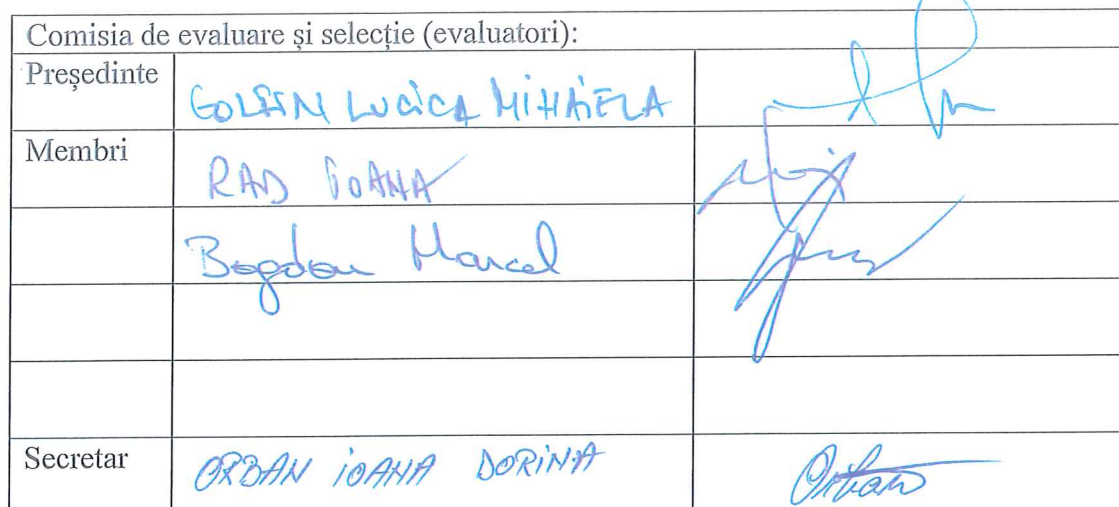 Comisia de evaluare și selecție (evaluatori):
Președinte LUCICA MIHAELA
Membri RAD IOANA
Bogdan Marcel
Secretar ORBAN IOANA DORINA Orban